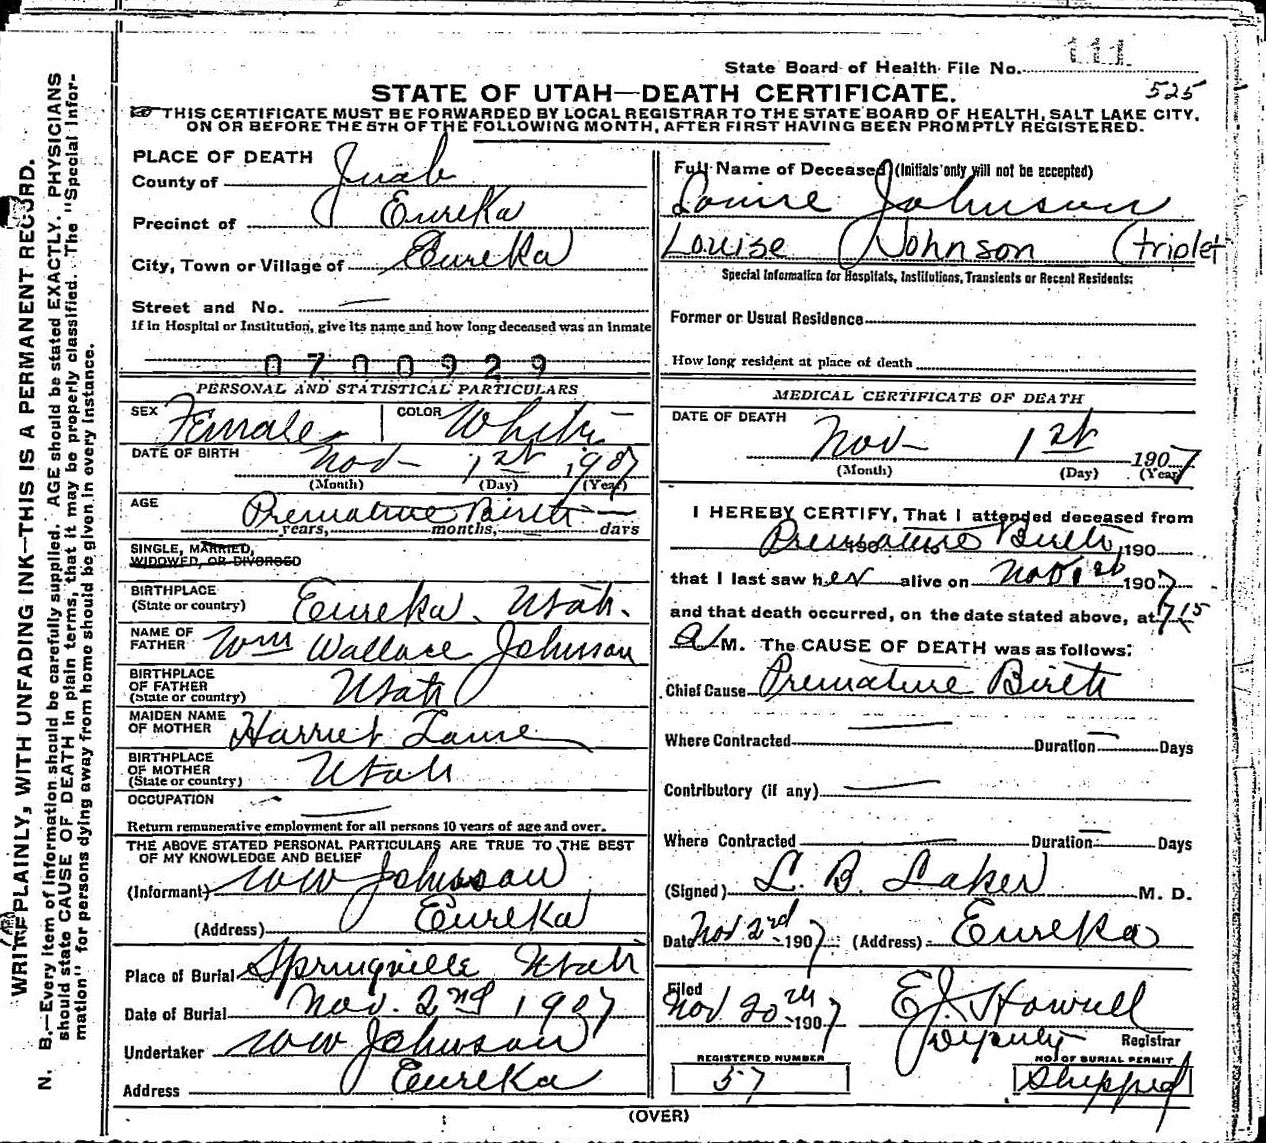 State Board of Health File No. 111
525
STATE OF UTAH—DEATH CERTIFICATE.
THIS CERTIFICATE MUST BE FORWARDED BY LOCAL REGISTRAR TO THE STATE BOARD OF HEALTH, SALT LAKE CITY,
ON OR BEFORE THE 5TH OF THE FOLLOWING MONTH, AFTER FIRST HAVING BEEN PROMPTLY REGISTERED.
WRITE PLAINLY, WITH UNFADING INK—THIS IS A PERMANENT RECORD.
N. B.—Every item of information should be carefully supplied. AGE should be stated EXACTLY. PHYSICIANS
should state CAUSE OF DEATH in plain terms, that it may be properly classified. The "Special Infor-
mation" for persons dying away from home should be given in every instance.
PLACE OF DEATH
County of Juab
Precinct of Eureka
City, Town or Village of Eureka
Street and No. —
If in Hospital or Institution, give its name and how long deceased was an inmate
0700929
PERSONAL AND STATISTICAL PARTICULARS
SEX Female COLOR White
DATE OF BIRTH Nov 1st 1907
(Month) (Day) (Year)
AGE Premature Birth
years, months, days
SINGLE, MARRIED,
WIDOWED, OR DIVORCED
BIRTHPLACE
(State or country) Eureka, Utah.
NAME OF
FATHER Wm Wallace Johnson
BIRTHPLACE
OF FATHER
(State or country) Utah
MAIDEN NAME
OF MOTHER Harriet
BIRTHPLACE
OF MOTHER
(State or country) Utah
OCCUPATION —
Return remunerative employment for all persons 10 years of age and over.
THE ABOVE STATED PERSONAL PARTICULARS ARE TRUE TO THE BEST
OF MY KNOWLEDGE AND BELIEF
(Informant) W W Johnson
(Address) Eureka
Place of Burial Springville Utah
Date of Burial Nov. 2nd 1907
Undertaker W W Johnson
Address Eureka
Full Name of Deceased (Initials only will not be accepted)
Louise Johnson
Louise Johnson (triplet
Special Information for Hospitals, Institutions, Transients or Recent Residents:
Former or Usual Residence
How long resident at place of death
MEDICAL CERTIFICATE OF DEATH
DATE OF DEATH
Nov 1st 1907
(Month) (Day) (Year)
I HEREBY CERTIFY, That I attended deceased from
Premature Birth, 190
that I last saw her alive on Nov 1st 1907
and that death occurred, on the date stated above, at 7 15
A M. The CAUSE OF DEATH was as follows:
Chief Cause Premature Birth
Where Contracted — Duration — Days
Contributory (if any) —
Where Contracted — Duration — Days
(Signed) L. B. Laker M. D.
Date Nov 2nd 1907 (Address) Eureka
Filed
Nov 20th 1907 E J Howell
Deputy Registrar
REGISTERED NUMBER
57
NO. OF BURIAL PERMIT
Shipped
(OVER)